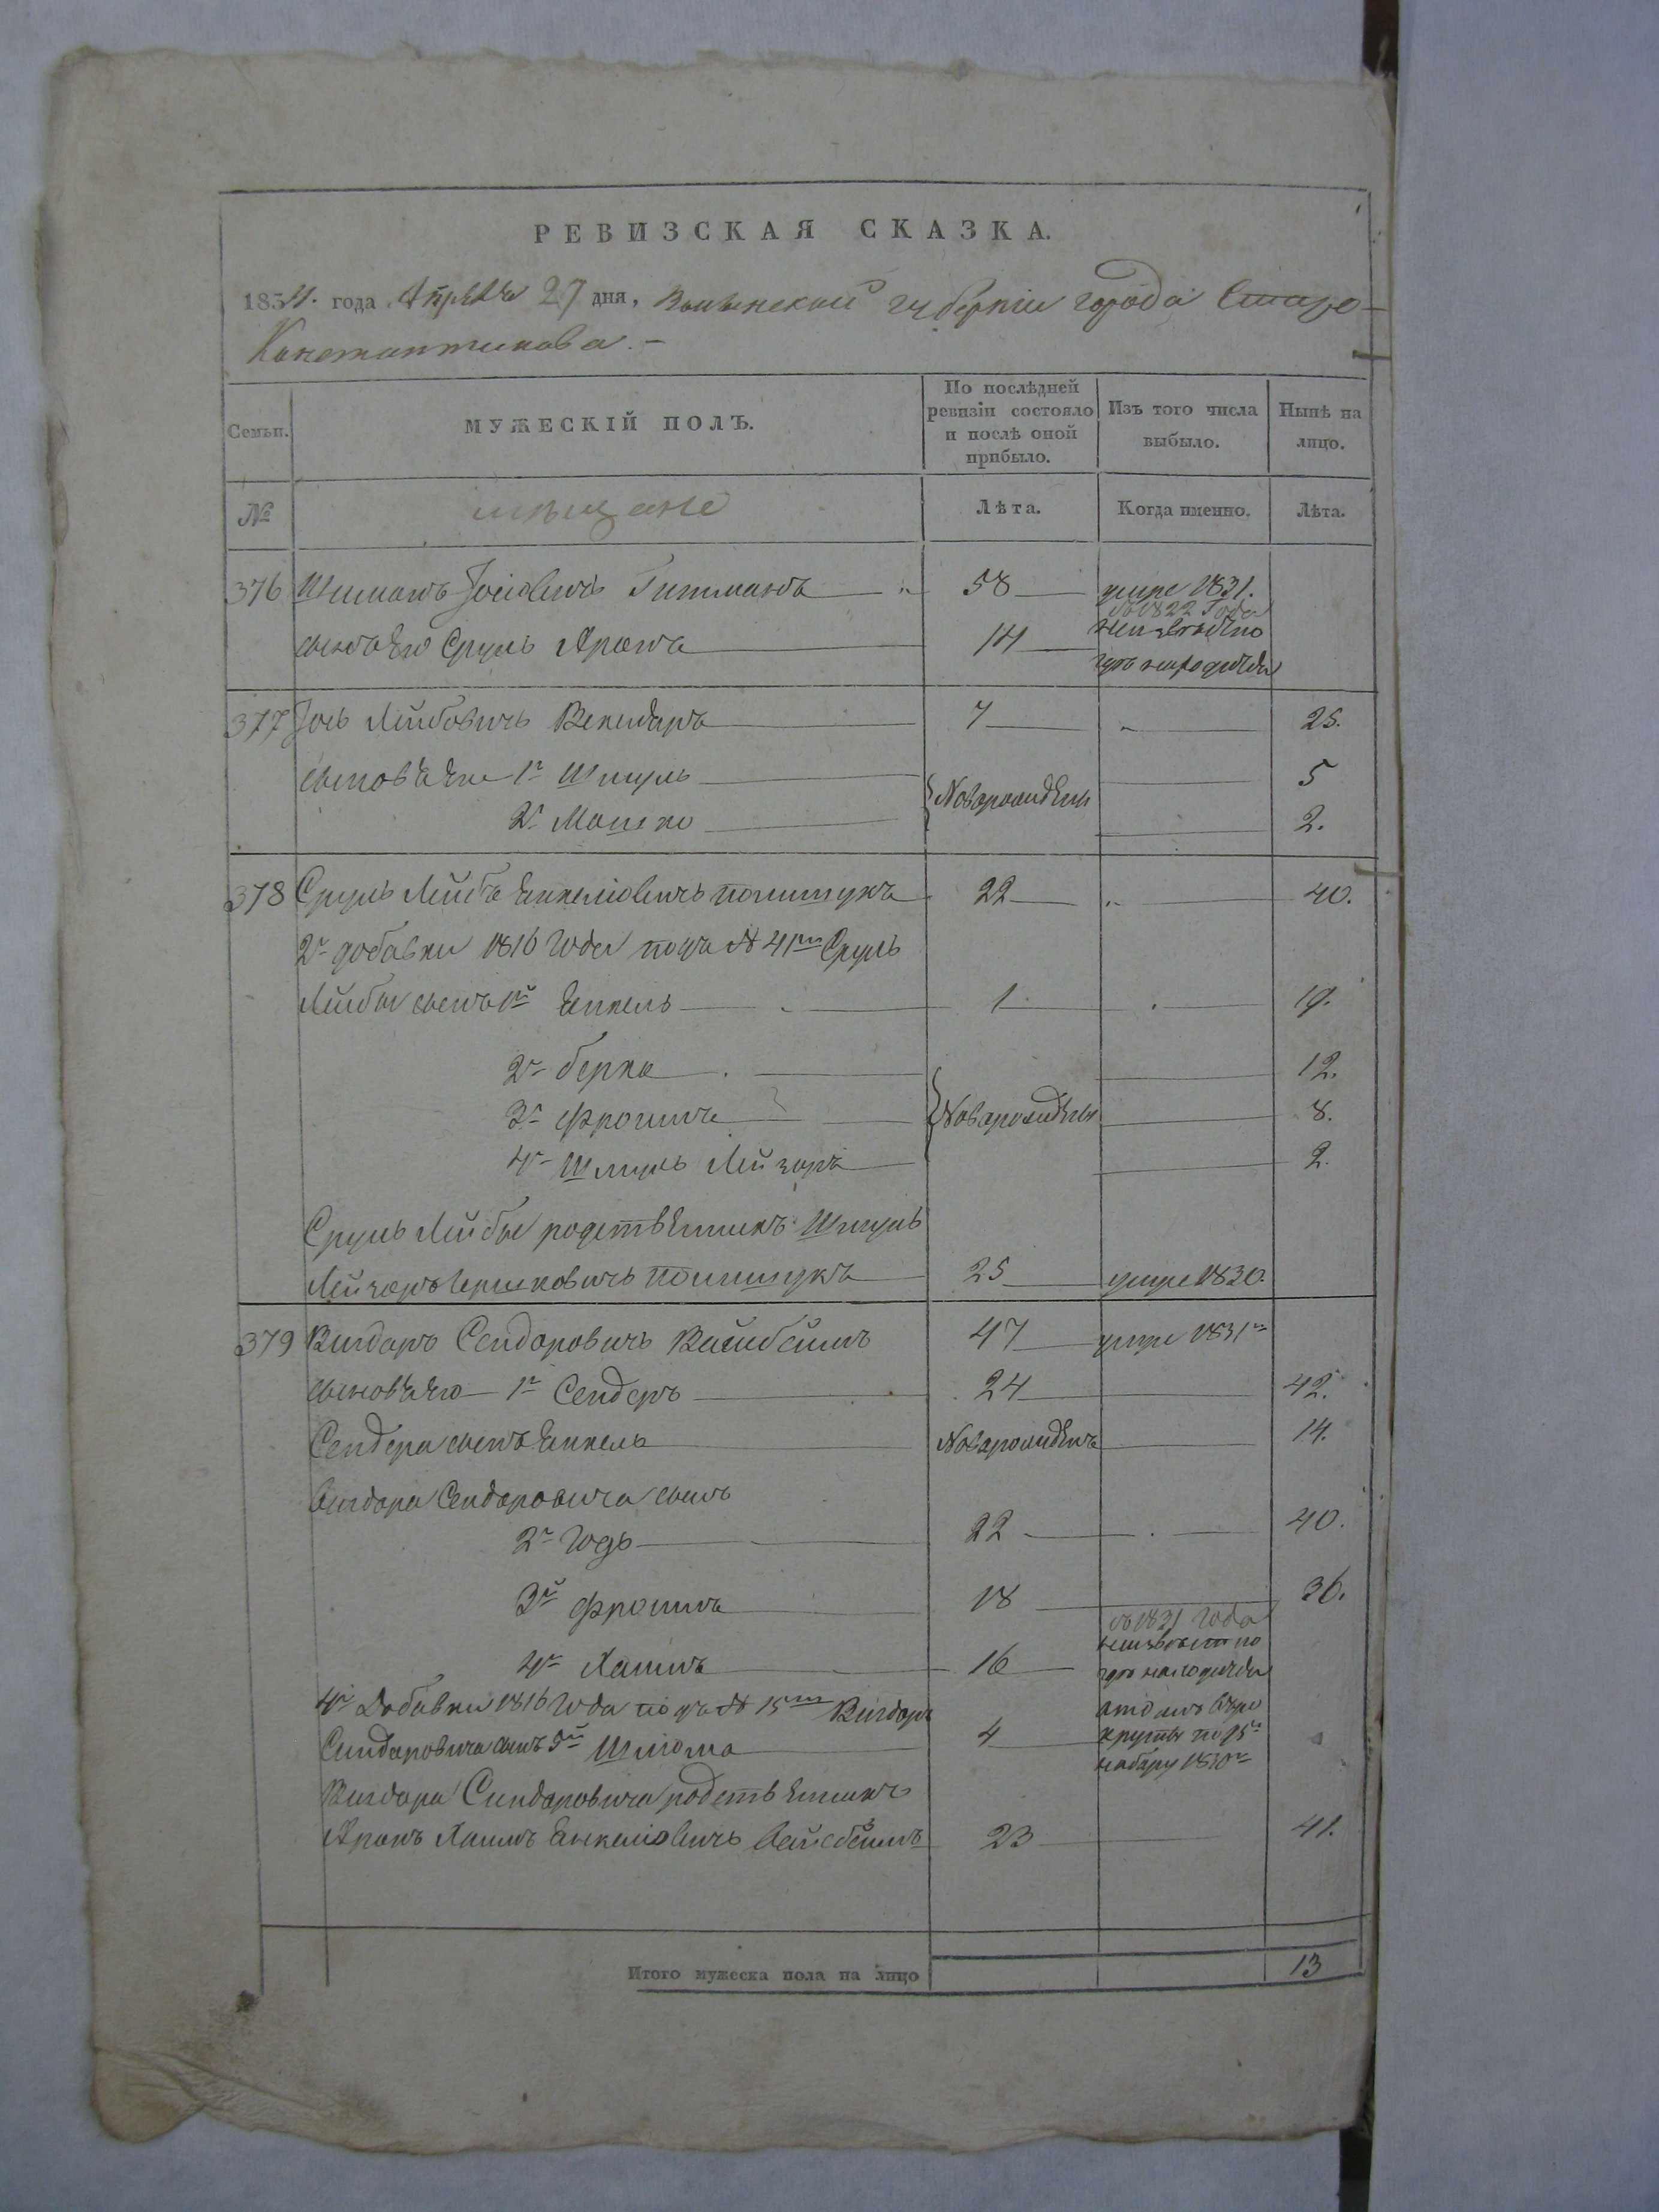 РЕВИЗСКАЯ СКАЗКА.
1834. года Апреля 27 дня, Волынской губернiи города Старо-
Константинова. -
Семьи. МУЖЕСКIЙ ПОЛЪ. По послѣдней ревизiи состояло и послѣ оной прибыло. Изъ того числа выбыло. Нынѣ на лицо.
№ мѣщане Лѣта. Когда именно. Лѣта.
376 Шиманъ Iосiовичъ Гитманъ 58 умре 1831.
сынъ его Сруль Аронъ 14 съ 1822 Года неизвѣстно гдѣ находится
377 Iось Лейбовичъ 7 25.
сыновья его 1й Шмуль Новорожденъ 5
2й Мошко 2.
378 Сруль Лейба Янкелiовичъ Полищукъ 22 40.
2й добавки 1816 Года подъ № 41м Сруль
Лейбы сынъ 1й Янкель 1 19.
2й Берко 12.
3й Фроимъ Новорожденъ 8.
4й Шмуль Лейзоръ 2.
Сруль Лейбы родственникъ Шмуль
Лейзоръ Гершковичъ Полищукъ 25 умре 1830.
379 Вигдоръ Сендоровичъ Вайсбеймъ 47 умре 1831го
сыновья его 1й Сендеръ 24 42.
Сендера сынъ Янкель Новорожденъ 14.
Вигдора Сендоровича сынъ
2й Юдь 22 40.
3й Фроимъ 18 36.
4й Хаимъ 16 съ 1831 Года неизвѣстно гдѣ находится
4й Добавки 1816 Года подъ № 15м Вигдора
Сендоровича сынъ 5й Шлiома 4 отданъ въ рекруты по 95му набору 1830го
Вигдора Сендоровича родственникъ
Аронъ Хаимъ Янкелiовичъ Вайсбеймъ 23 41.
Итого мужеска пола на лицо 13